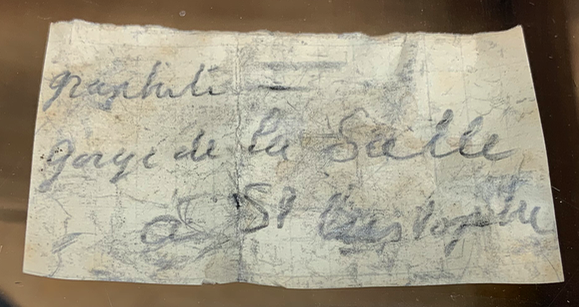 graphite
gorge de la Salle
St